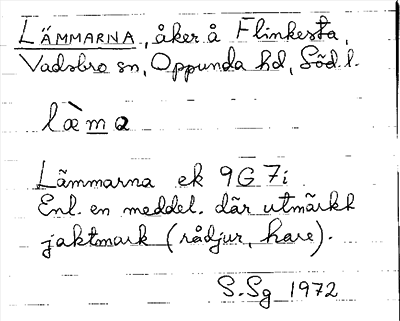 LÄMMARNA, åker å Flinkesta,
Vadsbro sn, Oppunda hd, Söd. l.
læ̀ma
Lämmarna ek 9G 7i
Enl. en meddel. där utmärkt
jaktmark (rådjur, hare).
S. Sg 1972